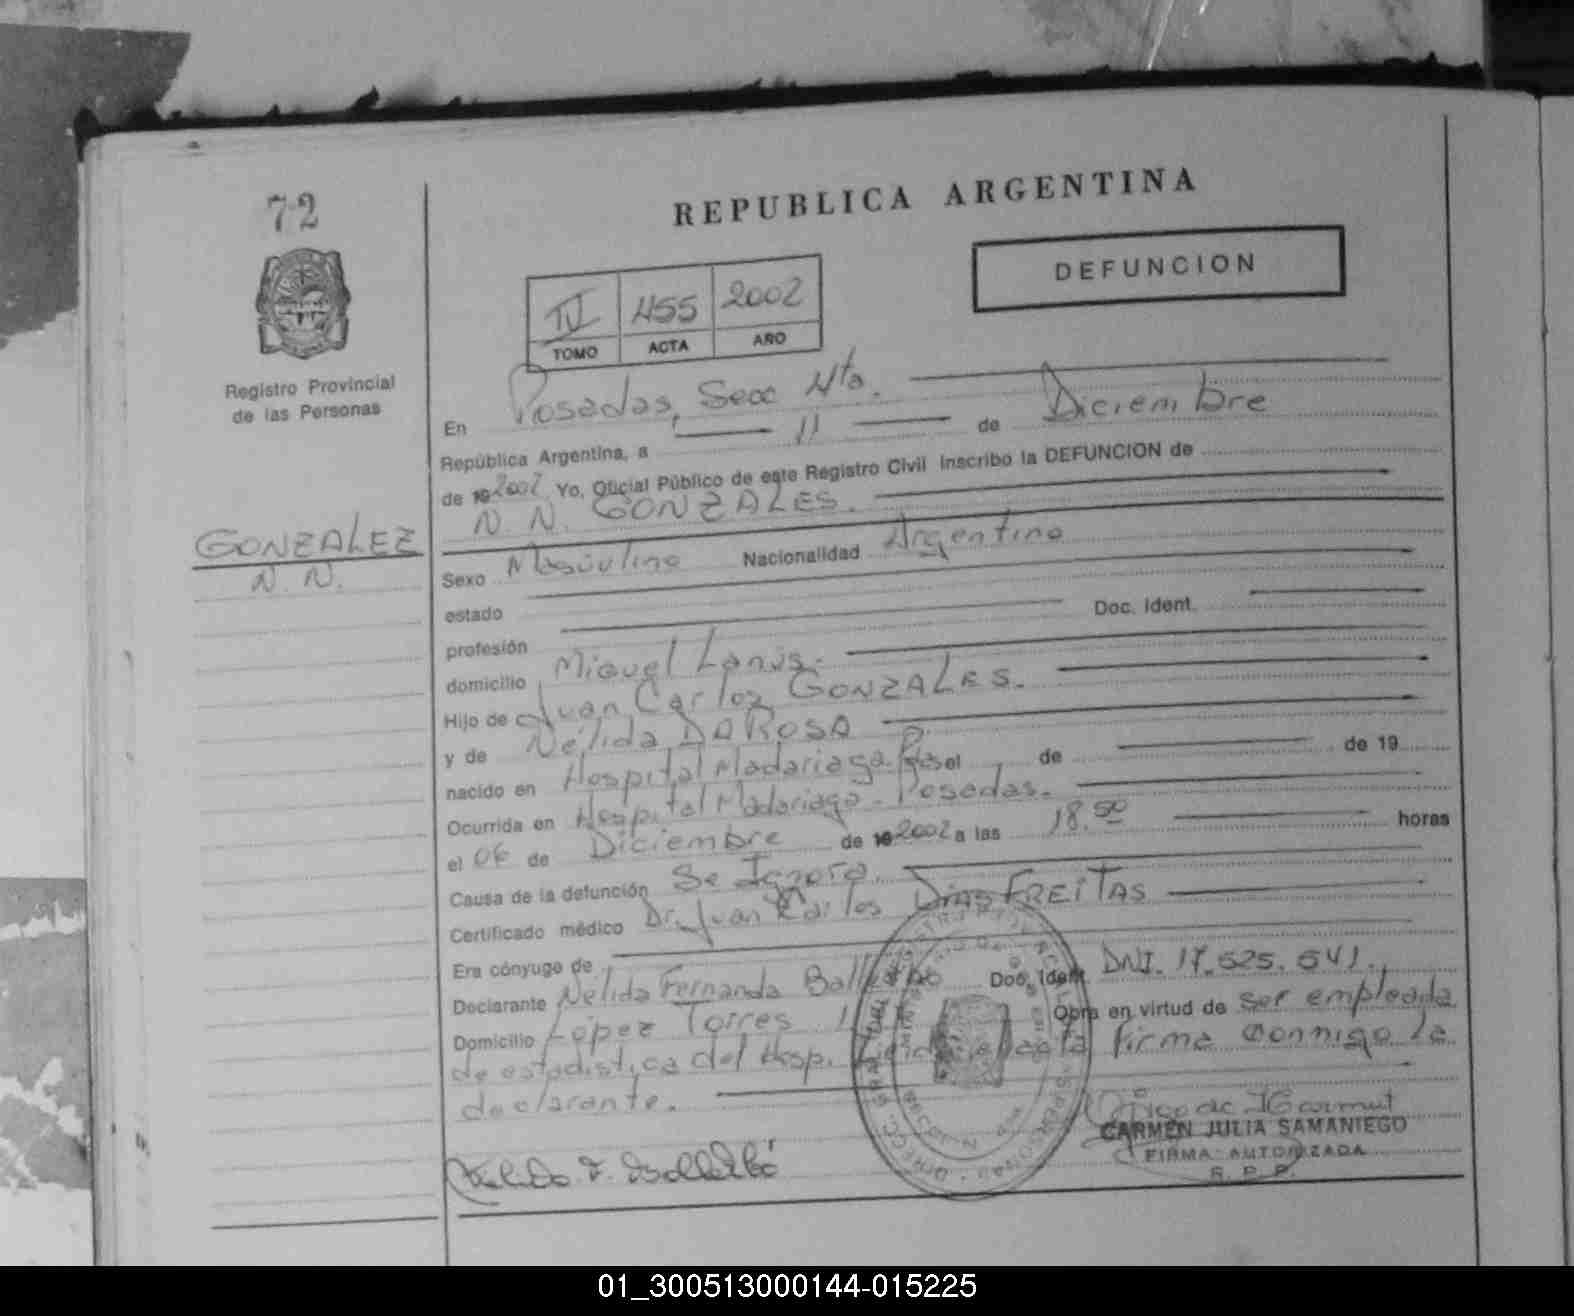 72
REPUBLICA ARGENTINA
DEFUNCION
IV 455 2002
TOMO ACTA AÑO
Registro Provincial
de las Personas
En Posadas, Secc 4ta.
República Argentina, a 11 de Diciembre
de 19 2002 Yo, Oficial Público de este Registro Civil inscribo la DEFUNCION de
N. N. GONZALES.
GONZALEZ
N. N.
Sexo Masculino Nacionalidad Argentino
estado
profesión Doc. Ident.
domicilio Miguel Lanús.
Hijo de Juan Carlos GONZALES.
y de Nélida DA ROSA
nacido en Hospital Madariaga. Pdas el de de 19
Ocurrida en Hospital Madariaga - Posadas.
el 06 de Diciembre de 19 2002 a las 18.50 horas
Causa de la defunción Se Ignora.
Certificado médico Dr. Juan Carlos Dias FREITAS
Era cónyuge de
Declarante Nelida Fernanda Doc. Ident. DNI. 17.525.541.
Domicilio López Torres Obra en virtud de ser empleada
de estadistica del Hosp. firma conmigo la
declarante.
CARMEN JULIA SAMANIEGO
FIRMA AUTORIZADA
R. P. P.
01_300513000144-015225